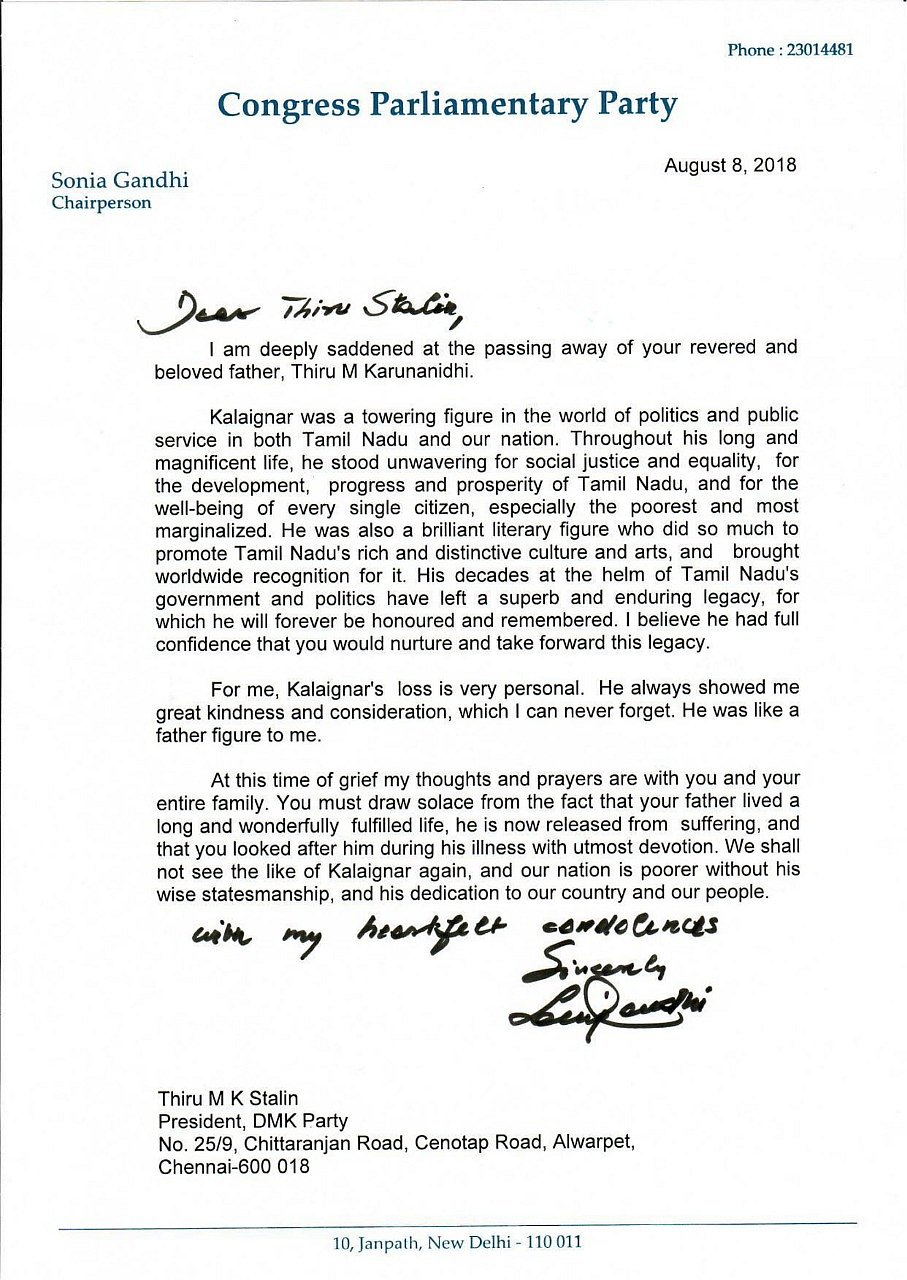 Phone : 23014481
Congress Parliamentary Party
August 8, 2018
Sonia Gandhi
Chairperson
Dear Thiru Stalin,
I am deeply saddened at the passing away of your revered and
beloved father, Thiru M Karunanidhi.
Kalaignar was a towering figure in the world of politics and public
service in both Tamil Nadu and our nation. Throughout his long and
magnificent life, he stood unwavering for social justice and equality, for
the development, progress and prosperity of Tamil Nadu, and for the
well-being of every single citizen, especially the poorest and most
marginalized. He was also a brilliant literary figure who did so much to
promote Tamil Nadu's rich and distinctive culture and arts, and brought
worldwide recognition for it. His decades at the helm of Tamil Nadu's
government and politics have left a superb and enduring legacy, for
which he will forever be honoured and remembered. I believe he had full
confidence that you would nurture and take forward this legacy.
For me, Kalaignar's loss is very personal. He always showed me
great kindness and consideration, which I can never forget. He was like a
father figure to me.
At this time of grief my thoughts and prayers are with you and your
entire family. You must draw solace from the fact that your father lived a
long and wonderfully fulfilled life, he is now released from suffering, and
that you looked after him during his illness with utmost devotion. We shall
not see the like of Kalaignar again, and our nation is poorer without his
wise statesmanship, and his dedication to our country and our people.
with my heartfelt condolences
Sincerely
Sonia Gandhi
Thiru M K Stalin
President, DMK Party
No. 25/9, Chittaranjan Road, Cenotap Road, Alwarpet,
Chennai-600 018
10, Janpath, New Delhi - 110 011